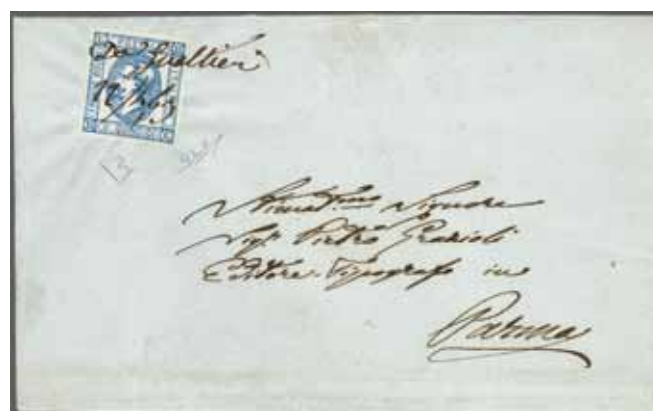 Da Gualtieri
Stimat.mo Signore
Sig.r Pietro Grazioli
Editore-Tipografo in
Parma